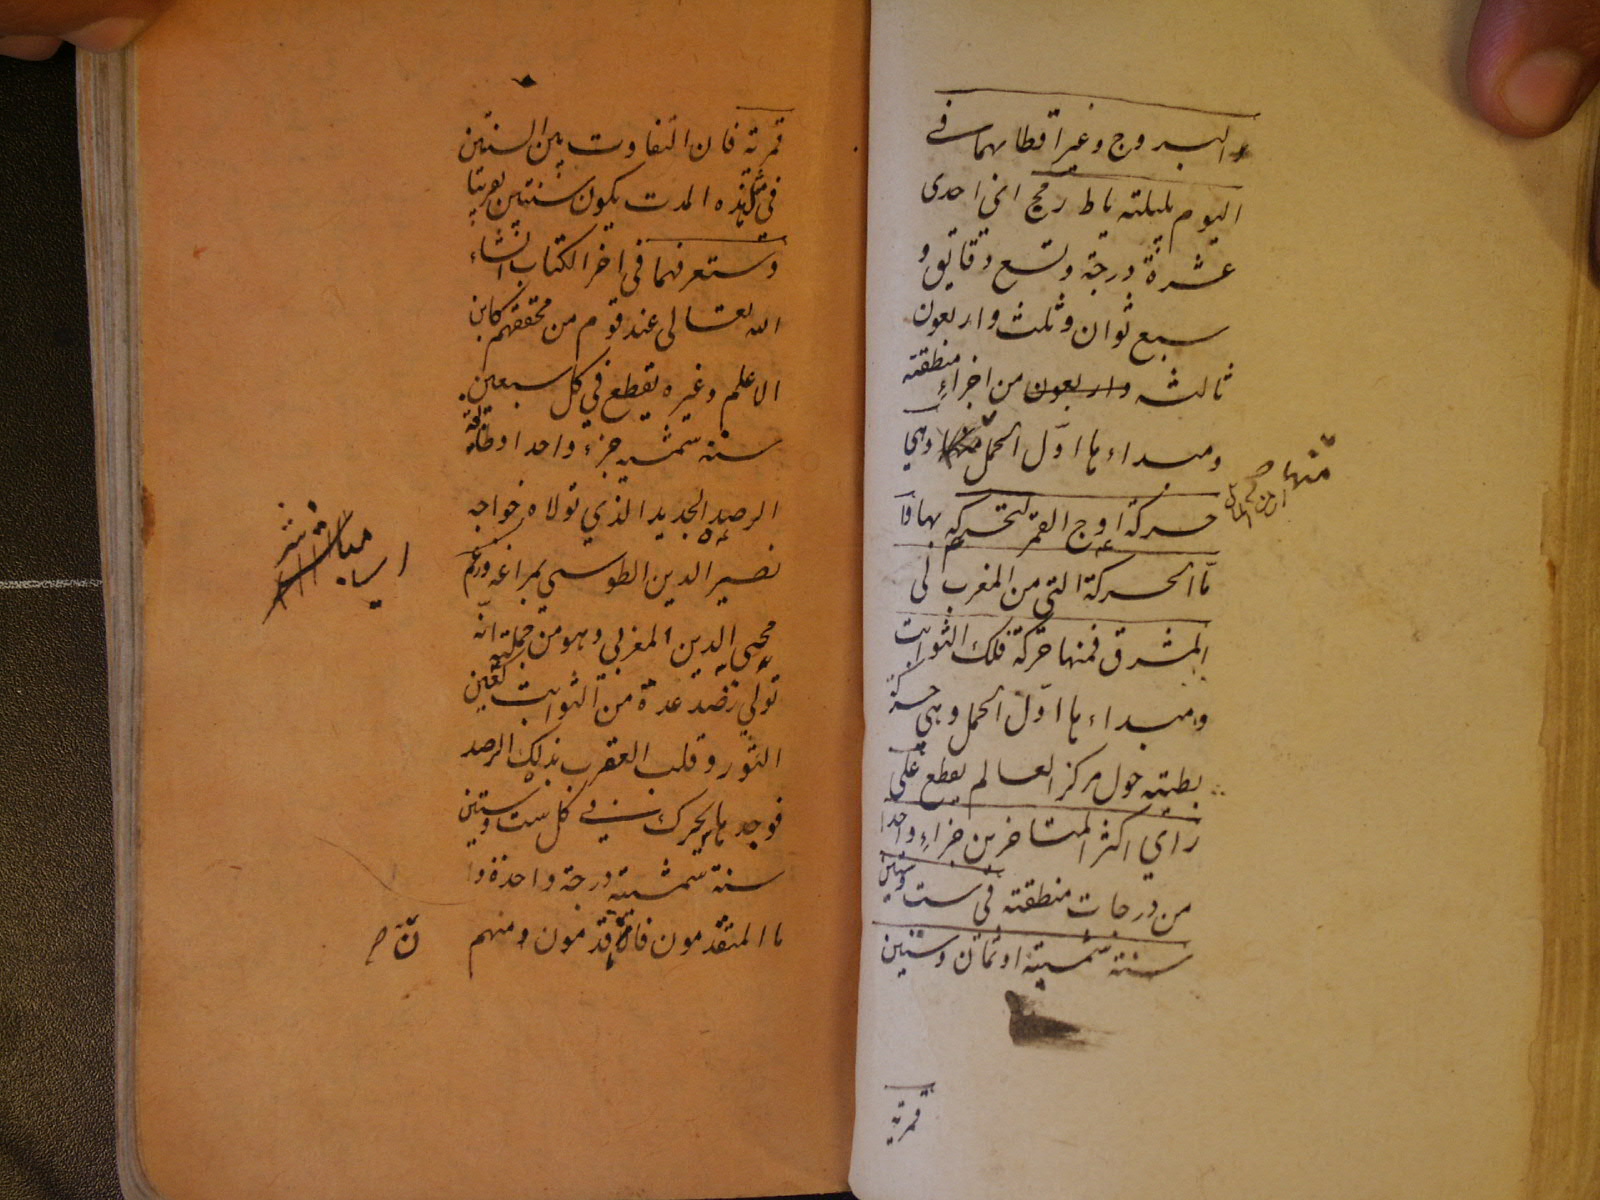 والبروج وغير اقطابهما في
اليوم بليلته يا ط ز مج اي احدى
عشرة درجة وتسع دقايق و
سبع ثوان وثلث واربعون
ثالثه واربعون من اجزاء منطقته
ومبداءها اول الحمل وهي
حركة اوج القمر لتحركه بها وا
ما الحركة التي من المغرب الى
المشرق فمنها حركة فلك الثوابت
ومبداءها اول الحمل وهي حركة
بطيئه حول مركز العالم يقطع على
راي اكثر المتاخرين جزاء واحدا
من درجات منطقته في ست وستين
سنة شمسية او ثمان وستين
قمرية
قمرية فان التفاوت بين السنتين
في مثل هذه المدت يكون سنتين تقريبا
وستعرفهما في اخر الكتاب انشاء
الله تعالى عند قوم من محققهم كابن
الاعلم وغيره يقطع في كل سبعين
سنة شمسيه جزء واحدا وطابقه
الرصد الجديد الذي تولاه خواجه
نصير الدين الطوسي بمراغه وزعم
محيي الدين المغربي وهو من جملته انه
تولي رصد عدة من الثوابت كعين
الثور وقلب العقرب بذلك الرصد
فوجدها يتحرك في كل ست وستين
سنة شمسية درجة واحدة وا
ما المتقدمون فالاقدمون ومنهم